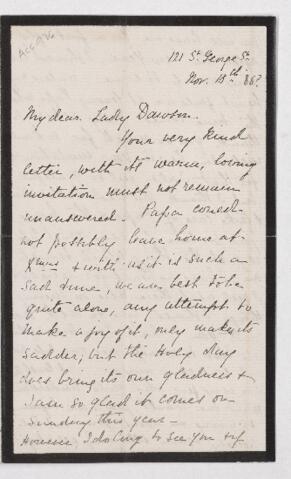 Acc 976
121 St. George St.
Nov. 13th 86?
My dear Lady Dawson.
Your very kind
letter, with its warm, loving
invitation must not remain
unanswered. Papa could
not possibly leave home at
Xmas & with us it is such a
sad time, we are best to be
quite alone, any attempt to
make a joy of it, only makes it
sadder, but the Holy Day
does bring its own gladness &
I am so glad it comes on
Sunday this year -
However I do long to see you & if